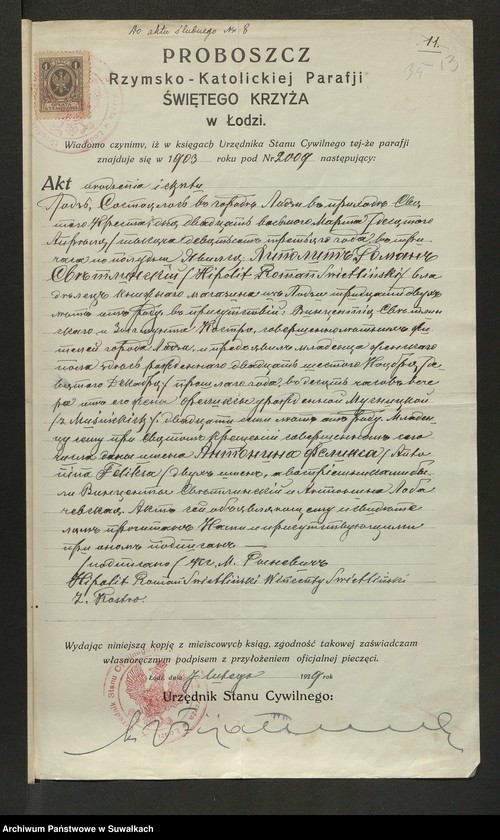 Do aktu ślubnego Nr 8
11.
35
13
PROBOSZCZ
Rzymsko-Katolickiej Parafji
ŚWIĘTEGO KRZYŻA
w Łodzi.
Wiadomo czynimy, iż w księgach Urzędnika Stanu Cywilnego tej-że parafji
znajduje się w 1903 roku pod Nr 2009 następujący:
Akt urodzenia i chrztu
Лодзь, Состоялось въ городѣ Лодзи въ приходѣ Свя
того Креста, дня двадцать восьмого Марта / десятого
Апрѣля / тысяча девятьсотъ третьяго года, въ три
часа по полудни. Явился Хиполитъ Романъ
Свѣтлинскій / Hipolit Roman Świetliński / вла
дѣлецъ книжного магазина изъ Лодзи тридцати двухъ
лѣтъ отъ роду, въ присутствіи: Винцентія Свѣтлин
скаго и Зигмунта Костро, совершеннолѣтнихъ жи
телей города Лодзи, и предъявилъ младенца женскаго
пола, рожденного двадцать шестого Ноября /
девятого Декабря / прошлаго года, въ десять часовъ вече
ра отъ его жены урожденной Мусницкой
/ z Muśnickich / двадцати лѣтъ отъ роду. Младен
цу сему при святомъ крещеніи совершенномъ сего
числа даны имена Антонина Феликса / Anto
nina Feliksa / двухъ именъ, а воспріемниками бы
ли Винцентый Свѣтлинскій и Антонина Лоба
чевская. Актъ сей объявляющему и свидѣте
лямъ прочитанъ, Нами и присутствующими
при ономъ подписанъ.
/ подписано /
Hipolit Roman Świetliński Wincenty Świetliński
Z. Kostro.
Wydając niniejszą kopję z miejscowych ksiąg, zgodność takowej zaświadczam
własnoręcznym podpisem z przyłożeniem oficjalnej pieczęci.
Łódź, dnia 7 lutego 1929 rok
Urzędnik Stanu Cywilnego:
Archiwum Państwowe w Suwałkach